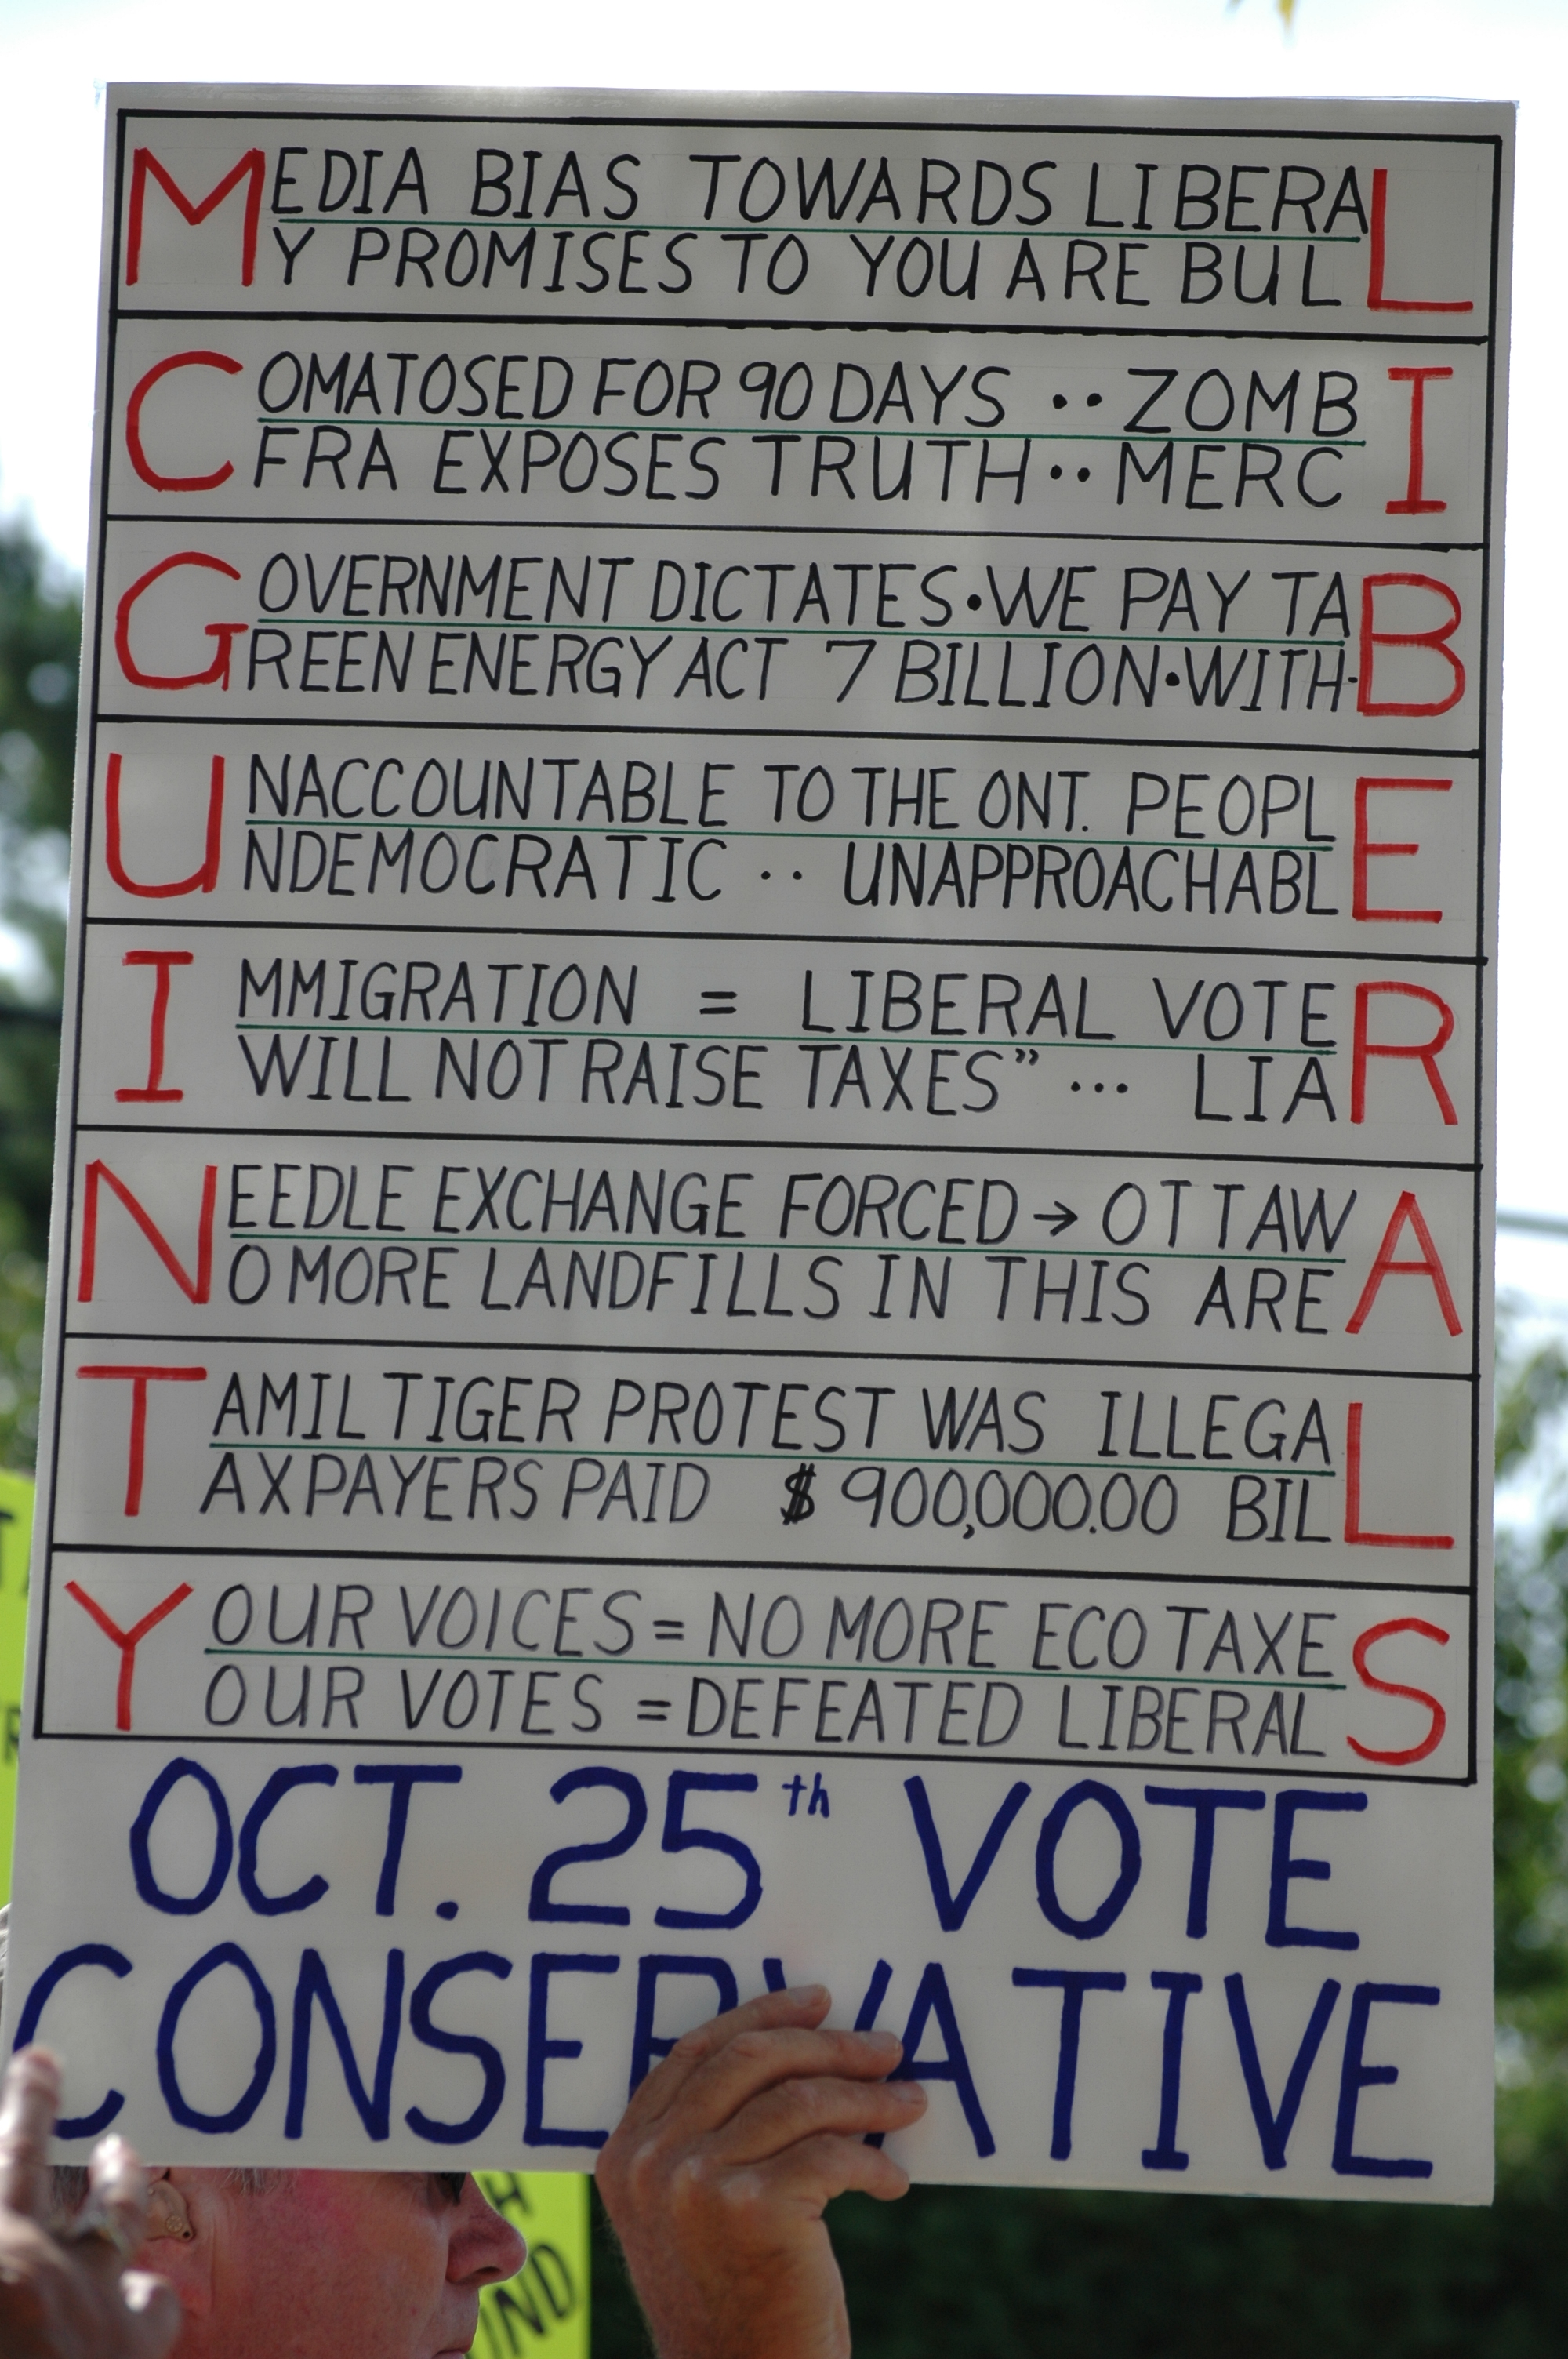 MEDIA BIAS TOWARDS LIBERAL
MY PROMISES TO YOU ARE BULL
COMATOSED FOR 90 DAYS .. ZOMBI
CFRA EXPOSES TRUTH.. MERCI
GOVERNMENT DICTATES·WE PAY TAB
GREEN ENERGY ACT 7 BILLION·WITH·B
UNACCOUNTABLE TO THE ONT. PEOPLE
UNDEMOCRATIC .. UNAPPROACHABLE
IMMIGRATION = LIBERAL VOTER
I WILL NOT RAISE TAXES" ... LIAR
NEEDLE EXCHANGE FORCED → OTTAWA
NO MORE LANDFILLS IN THIS AREA
TAMIL TIGER PROTEST WAS ILLEGAL
TAXPAYERS PAID $900,000.00 BILL
YOUR VOICES = NO MORE ECO TAXES
YOUR VOTES = DEFEATED LIBERALS
OCT. 25th VOTE
CONSERVATIVE